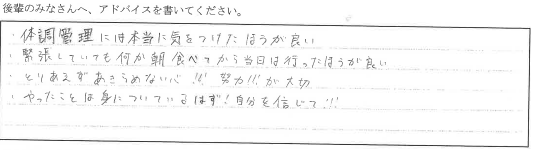 後輩のみなさんへ、アドバイスを書いてください。
・体調管理には本当に気をつけたほうが良い
・緊張していても何か朝食べてから当日は行ったほうが良い
・とりあえずあきらめない心!!! 努力!!!が大切
・やったことは身についているはず!自分を信じて!!!